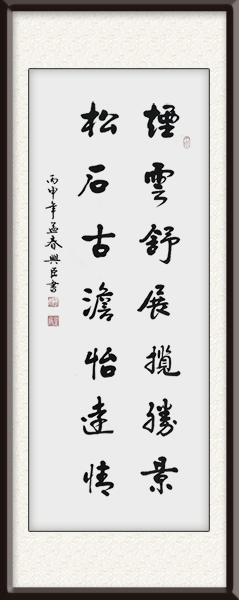 煙雲舒展攬勝景
松石古澹怡逺情
丙申年孟春興臣書